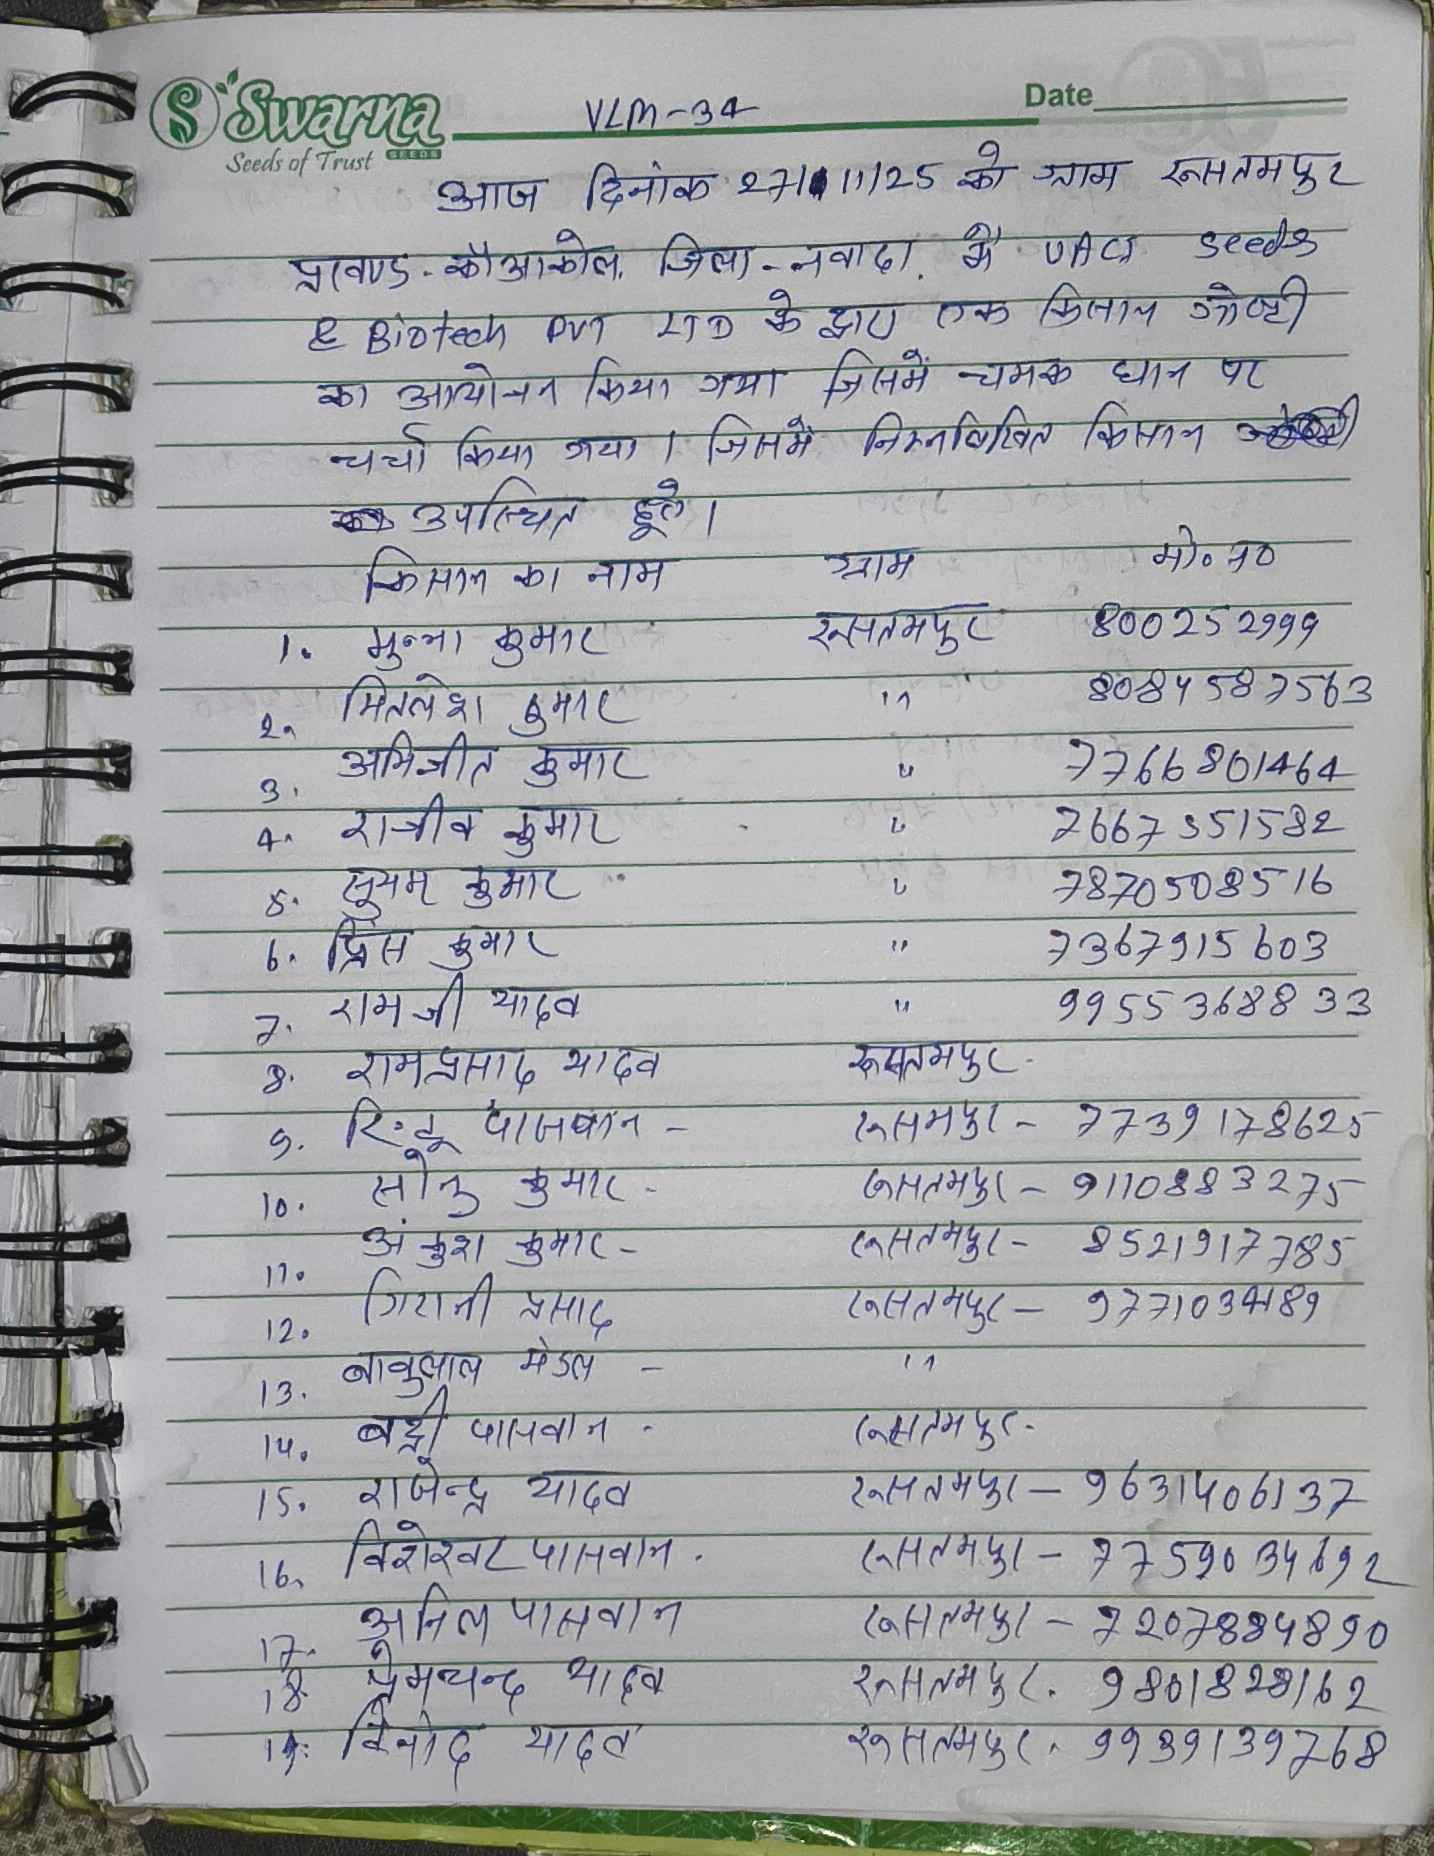 Swarna
Seeds of Trust SEEDS
VLM-34
Date
आज दिनांक 27/11/25 को ग्राम रूसतमपुर
प्रखण्ड-कौआकोल, जिला-नवादा, में UACS Seeds
& Biotech PVT LTD के द्वारा एक किसान गोष्टी
का आयोजन किया गया जिसमें चमक धान पर
चर्चा किया गया। जिसमें निम्नलिखित किसान
उपस्थित हुले।
किसान का नाम ग्राम मो० न०
1. मुन्ना कुमार रूसतमपुर 800252999
2. मितलेश कुमार " 8084587563
3. अभिजीत कुमार " 7766801464
4. राजीव कुमार " 7667351582
5. सूयम कुमार " 7870508516
6. प्रिंस कुमार " 7367915603
7. रामजी यादव " 9955368833
8. रामप्रसाद यादव रूसतमपुर.
9. रिन्टू पासवान - रूसमपुर - 7739178625
10. सोनु कुमार - रूसतमपुर - 9110883275
11. अंकुश कुमार - रूसतमपुर - 8521917785
12. गिरानी प्रसाद रूसतमपुर - 9771034189
13. बाबुलाल मंडल - "
14. बद्री पासवान - रूसतमपुर.
15. राजेन्द्र यादव रूसतमपुर - 9631406137
16. विशेश्वर पासवान. रूसतमपुर - 7759034692
17. अनिल पासवान रूसतमपुर - 7207884890
18. प्रेमचन्द यादव रूसतमपुर. 9801828162
19. विनोद यादव रूसतमपुर. 9939139768